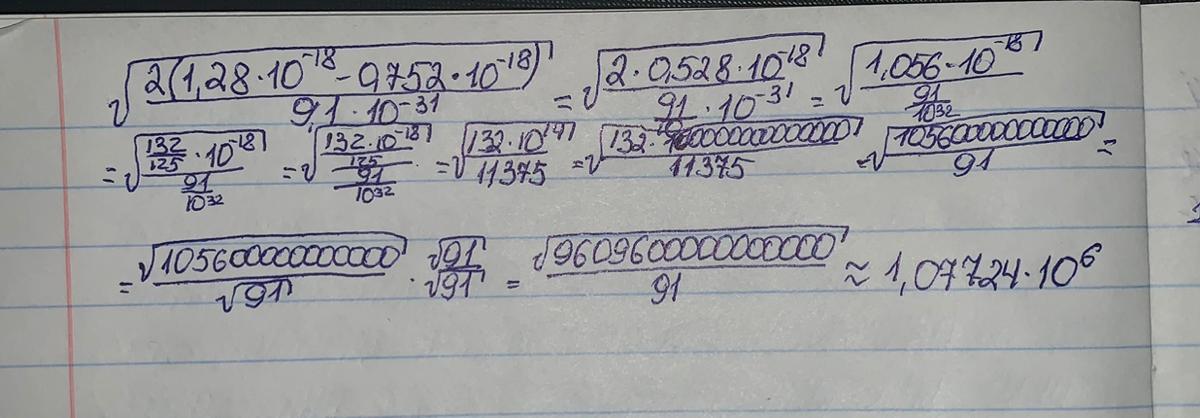 √(2(1,28·10^-18 - 0,752·10^-18) / 9,1·10^-31) = √(2·0,528·10^-18 / (91/10 · 10^-31)) = √(1,056·10^-18 / (91/10^32))
= √((132/125 · 10^-18) / (91/10^32)) = √((132·10^-18 / 125) / (91/10^32)) = √(132·10^14 / 11375) = √(132·100000000000000 / 11375) = √(105600000000000 / 91) =
= √105600000000000 / √91 · √91/√91 = √9609600000000000 / 91 ≈ 1,07724·10^6